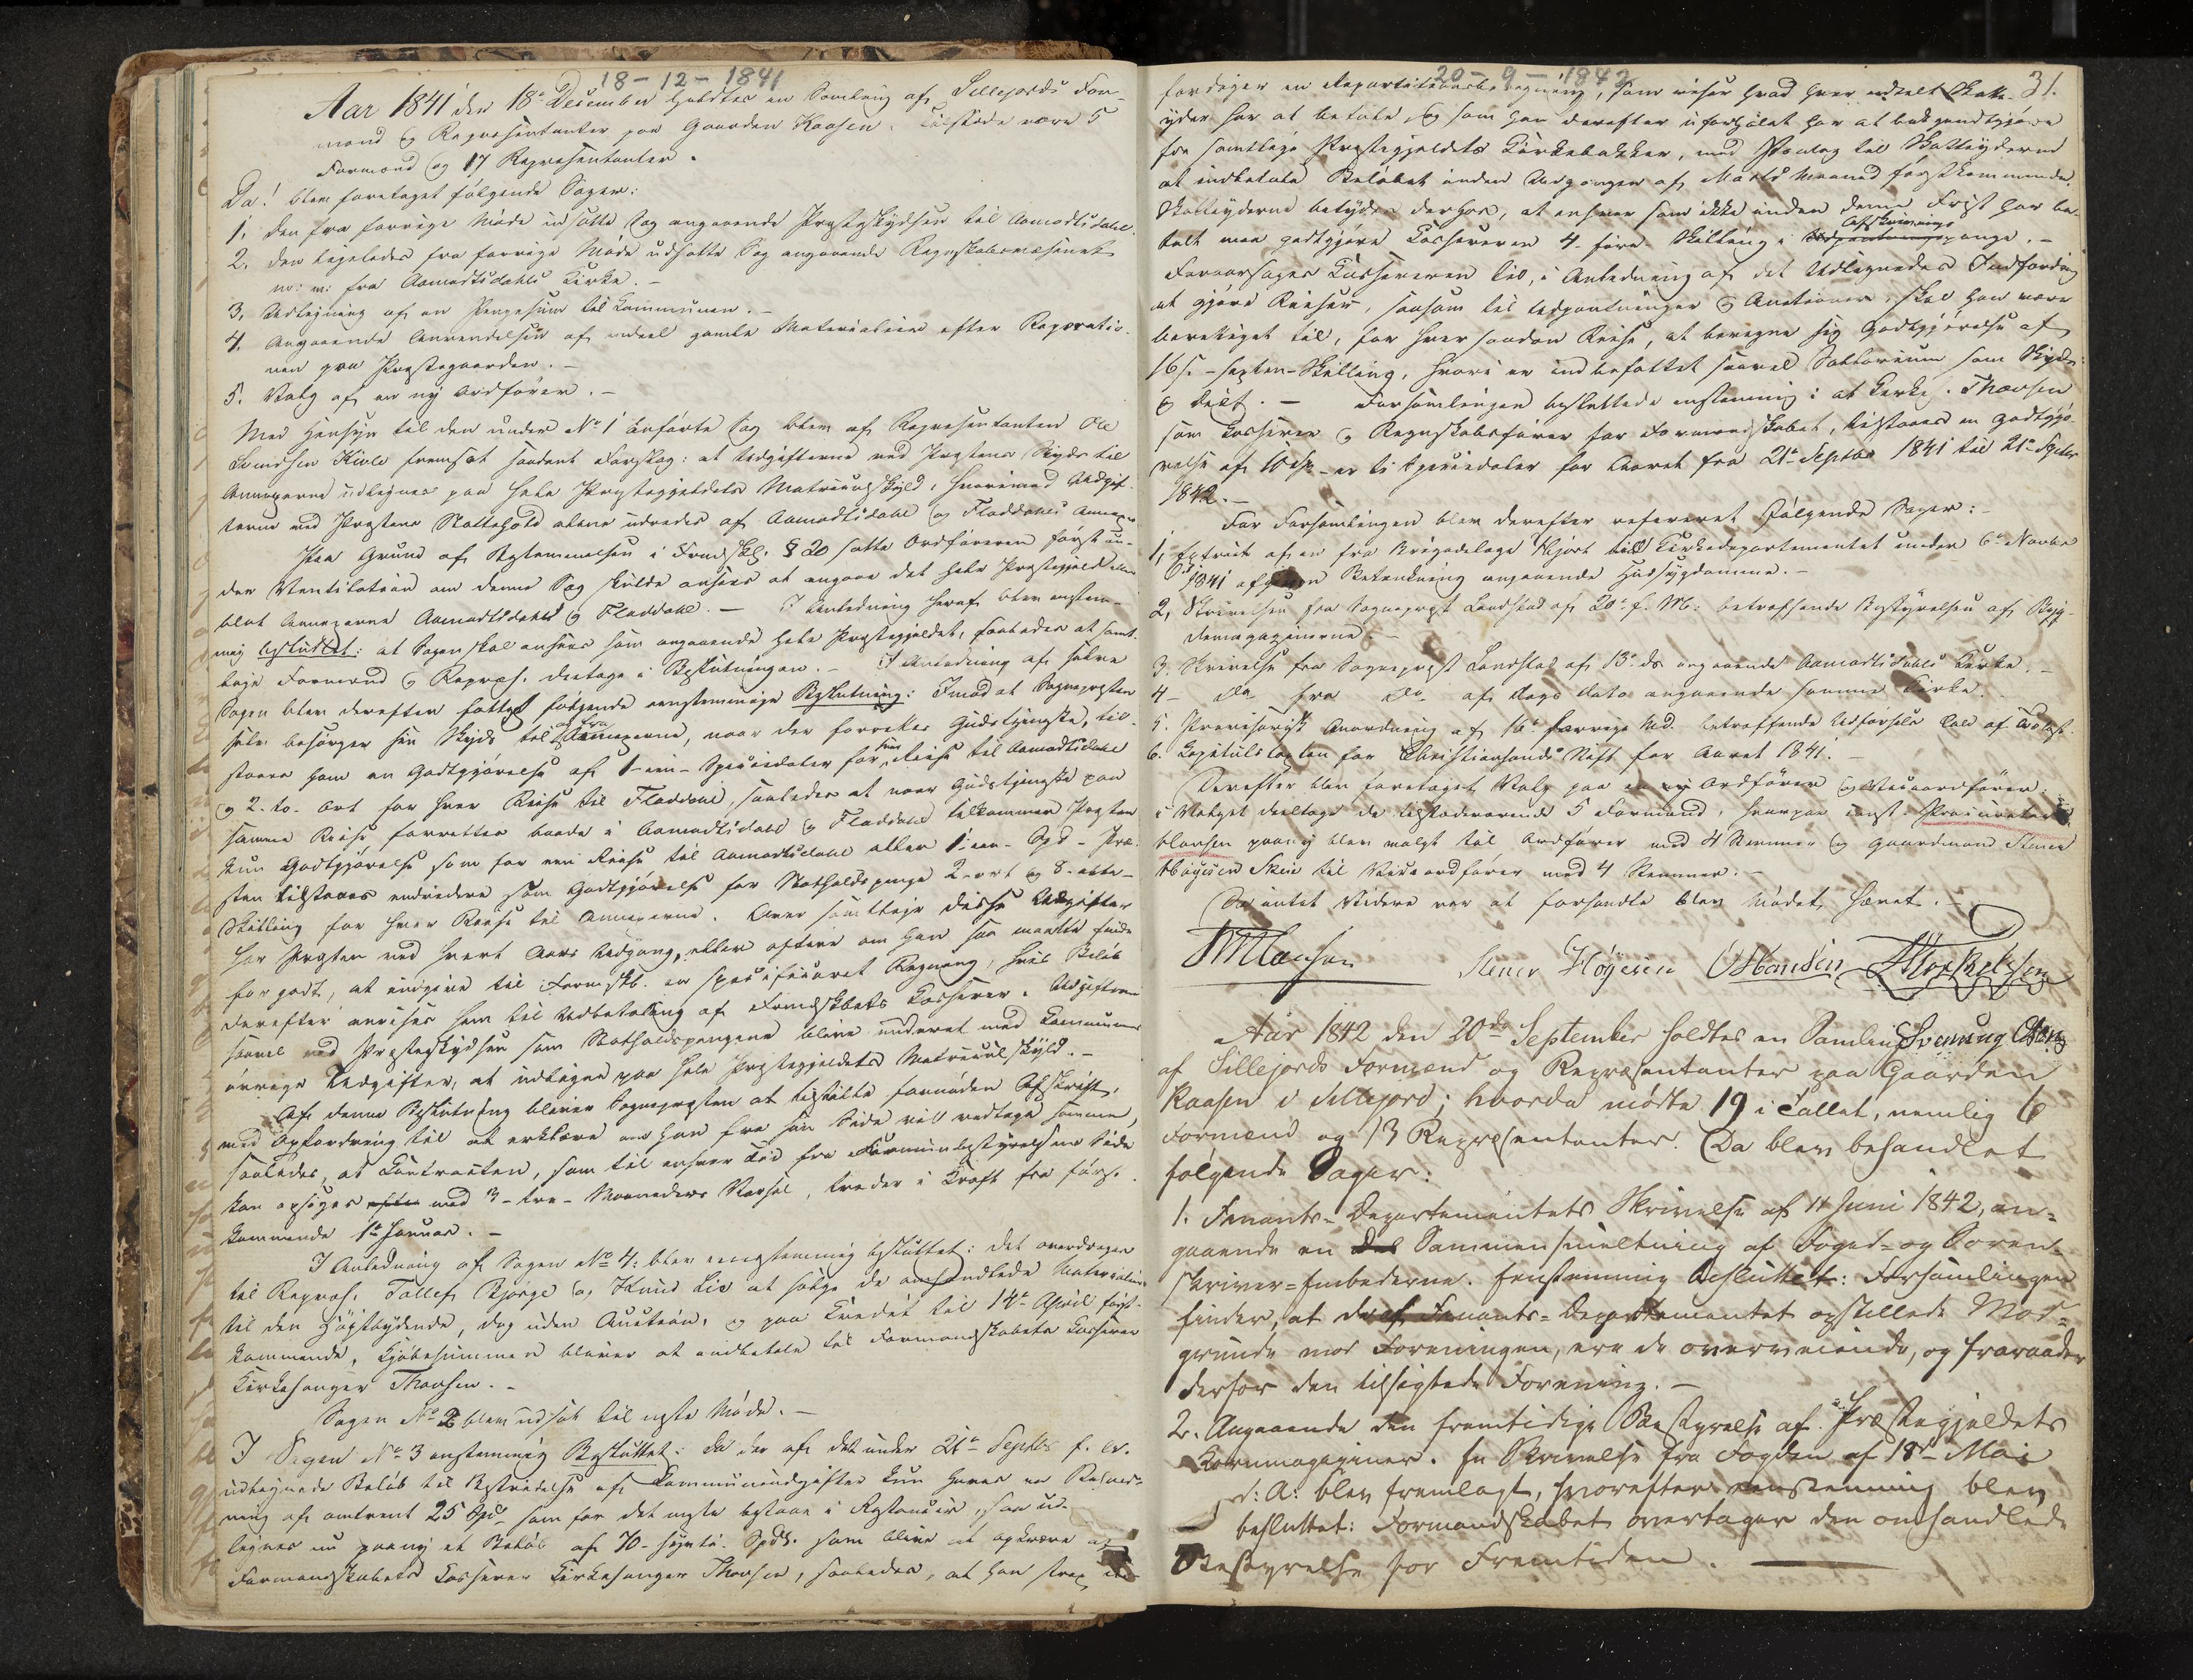 18-12-1841
Aar 1841 den 18de December holdtes en Samling af Sillejords For-
mænd og Repræsentanter paa Gaarden Kaasen. Tilstede vare 5
Formænd og 17 Repræsentanter.
Da! blev foretaget følgende Sager:
1, den fra forrige Møde udsatte Sag angaaende Præsteskydsen til Aamodtsdahl.
2, den ligeledes fra forrige Møde udsatte Sag angaaende Regnskabsvæsenet
m: m: fra Aamodtsdahls Kirke. –
3, Udligning af en Pengesum til Kommunen. –
4. Angaaende Anvendelsen af endeel gamle Materialier efter Reparatio-
nen paa Præstegaarden. –
5. Valg af en ny Ordfører. –
Med Hensyn til den under No 1 anførte Sag blev af Repræsentanten Ole
Svendsen Kivle fremsat saadant Forslag: at Udgifterne ved Præstens Skyds til
Annexerne udlignes paa hele Præstegjeldets Matriculskyld, hvorimod Udgif-
terne ved Præstens Natteholdt alene udredes af Aamodtsdahl og Fladdahls Annexer
Paa Grund af Bestemmelsen i Frmdskbl. § 20 satte Ordføreren først un-
der Ventilation om denne Sag skulde ansees at angaae det hele Præstegjeld eller
blot Annexerne Aamodtsdahl og Fladdahl. – I Anledning heraf blev enstem-
mig besluttet: at Sagen skal ansees som angaaende hele Præstegjeldet, saaledes at samt-
lige Formænd og Repræs. deeltage i Beslutningen. – I Anledning af selve
Sagen blev derefter fattet følgende eenstemmige Beslutning: Imod at Sognepræsten
selv besørger sin Skyds til og fra Annexerne, naar der forrettes Gudstjeneste, til-
staaes ham en Godtgjørelse af 1-een-Speciedaler for hver Reise til Aamodtsdahl
og 2-to-Ort for hver Reise til Fladdahl, saaledes at naar Gudstjeneste paa
samme Reise forrettes baade i Aamodtsdahl og Fladdahl tilkommer Præsten
kun Godtgjørelse som for een Reise til Aamodtsdahl eller 1-een-Spd – Præ-
sten tilstaaes endvidere som Godtgjørelse for Natholdspenge 2-ort og 8-otte-
Skilling for hver Reise til Annexerne. Over samtlige disse Udgifter
har Præsten ved hvert Aars Udgang, eller oftere om han saa maatte finde
for godt, at indgive til Formskb. en specificeret Regning, hvis Beløb
derefter anvises ham til Udbetaling af Frmdskbets Casserer. Udgifterne
saavel ved Præsteskydsen som Natholdspengene blive iberegnet med Kommunens
øvrige Udgifter, at udligne paa hele Præstegjeldets Matriculskyld. –
Af denne Beslutning bliver Sognepræsten at tilstille fornøden Afskrift,
med Opfordring til at erklære om han fra sin Side vil vedtage samme,
saaledes, at Contracten, som til enhver Tid fra Kommunebestyrelsens Side
kan opsiges efter med 3-tre-Maaneders Varsel, træder i Kraft fra først-
kommende 1ste Januar. –
I Anledning af Sagen No 4: blev eenstemmig besluttet: det overdrages
til Repræs. Tallef Bjørge og Knud Lie at sælge de omhandlede Materialier
til den Høistbydende, dog uden Auction, og paa Credit til 14de April først-
kommende, Kjøbesummen bliver at indbetale til Formandskabets Casserer
Kirkesanger Thorsen. –
Sagen No 2 blev udsat til næste Møde. –
I Sagen No 3 enstemmig Besluttet: Da der af det under 21de Septbr f. A.
udlignede Beløb til Bestridelse af Kommuneudgifter kun haves en Behold-
ning af omtrent 25 Spd som for det meste bestaae i Restancer, saa ud-
lignes nu paany et Beløb af 70-sytti-Spdlr. som blive at opkræve af
Formandskabets Casserer Kirkesanger Thorsen, saaledes, at han strax
20-9-1842
31.
færdiger en Repartitionsberegning, som viser hvad hver enkelt Skatte-
yder har at betale, og som han derefter ufortøvet har at bekjendtgjøre
fra samtlige Præstegjeldets Kirkebakker, med Paalæg til Skatteyderne
at indbetale Beløbet inden Udgangen af Marts Maaned førstkommende.
Skatteyderne betydes derhos, at enhver som ikke inden denne Frist har be-
talt maa godtgjøre Cassereren 4-fire-Skilling i Afskrivnings penge. –
Foraarsages Cassereren til, i Anledning af det Udlignedes Inddrivning
at gjøre Reiser, saasom til Udpantninger og Auctioner, skal han være
berettiget til, for hver saadan Reise, at beregne sig Godtgjørelse af
16/. – sexten-Skilling, hvori er indbefattet saavel Sallarium som Skyds
og Diæt. – Forsamlingen besluttede enstemmig: at Kirkes. Thorsen
som Casserer og Regnskabsfører for Formandskabet, tilstaaes en Godtgjø-
relse af 10 Spd – er ti Speciedaler for Aaret fra 21de Septbr 1841 til 21de Septbr
1842. –
For Forsamlingen blev derefter refereret følgende Sager: –
1, Extract af en fra Brigadelæge Hjort til Kirkedepartementet under 6te Novbr
1841 afgiven Betænkning angaaende Hudsygdomme. –
2, Skrivelse fra Sognepræst Landstad af 20de f. M: betræffende Bestyrelsen af Byg-
demagazinerne. –
3. Skrivelse fra Sognepræst Landstad af 13de ds angaaende Aamodtsdahls Kirke. –
4 – do fra do af dags dato angaaende samme Kirke.
5. Provisorisk Anordning af 16de forrige Md. betræffende Udførsels Told af Trælast.
6. Kapitulstaxten for Christianssands Stift for Aaret 1841. –
Derefter blev foretaget Valg paa en ny Ordfører og Viceordfører.
i Valget deeltoge de tilstedeværende 5 Formænd, hvorpaa const. Procurator
Clausen paany blev valgt til Ordfører med 4 Stemmer og Gaardmand Stener
Høgesen Skeie til Viceordfører med 4 Stemmer. –
Da intet Videre var at forhandle blev Mødet hævet. –
Clausen Stener Høgesen O Hansen Thorkelsen
Svenung
Aar 1842 den 20de September holdtes en Samling
af Sillejords Formænd og Repræsentanter paa Gaarden
Kaasen i Sillejord; hvorda mødte 19 i Tallet, nemlig 6
Formænd og 13 Repræsentanter. Da blev behandlet
følgende Sager:
1. Finants-Departementets Skrivelse af 11 Juni 1842, an-
gaaende en Sammensmeltning af Foged- og Soren-
skriver-Embederne. Eenstemmig besluttet: Forsamlingen
finder, at de af Finants-Departementet opstillede Mod-
grunde mod Foreningen, ere de overveiende, og fraraader
derfor den tilsigtede Forening. –
2. Angaaende den fremtidige Bestyrelse af Præstegjeldets
Kornmagaziner. En Skrivelse fra Fogden af 18de Mai
d: A: blev fremlagt, hvorefter eenstemmig blev
besluttet: Formandskabet overtager den omhandlede
Bestyrelse for Fremtiden. –